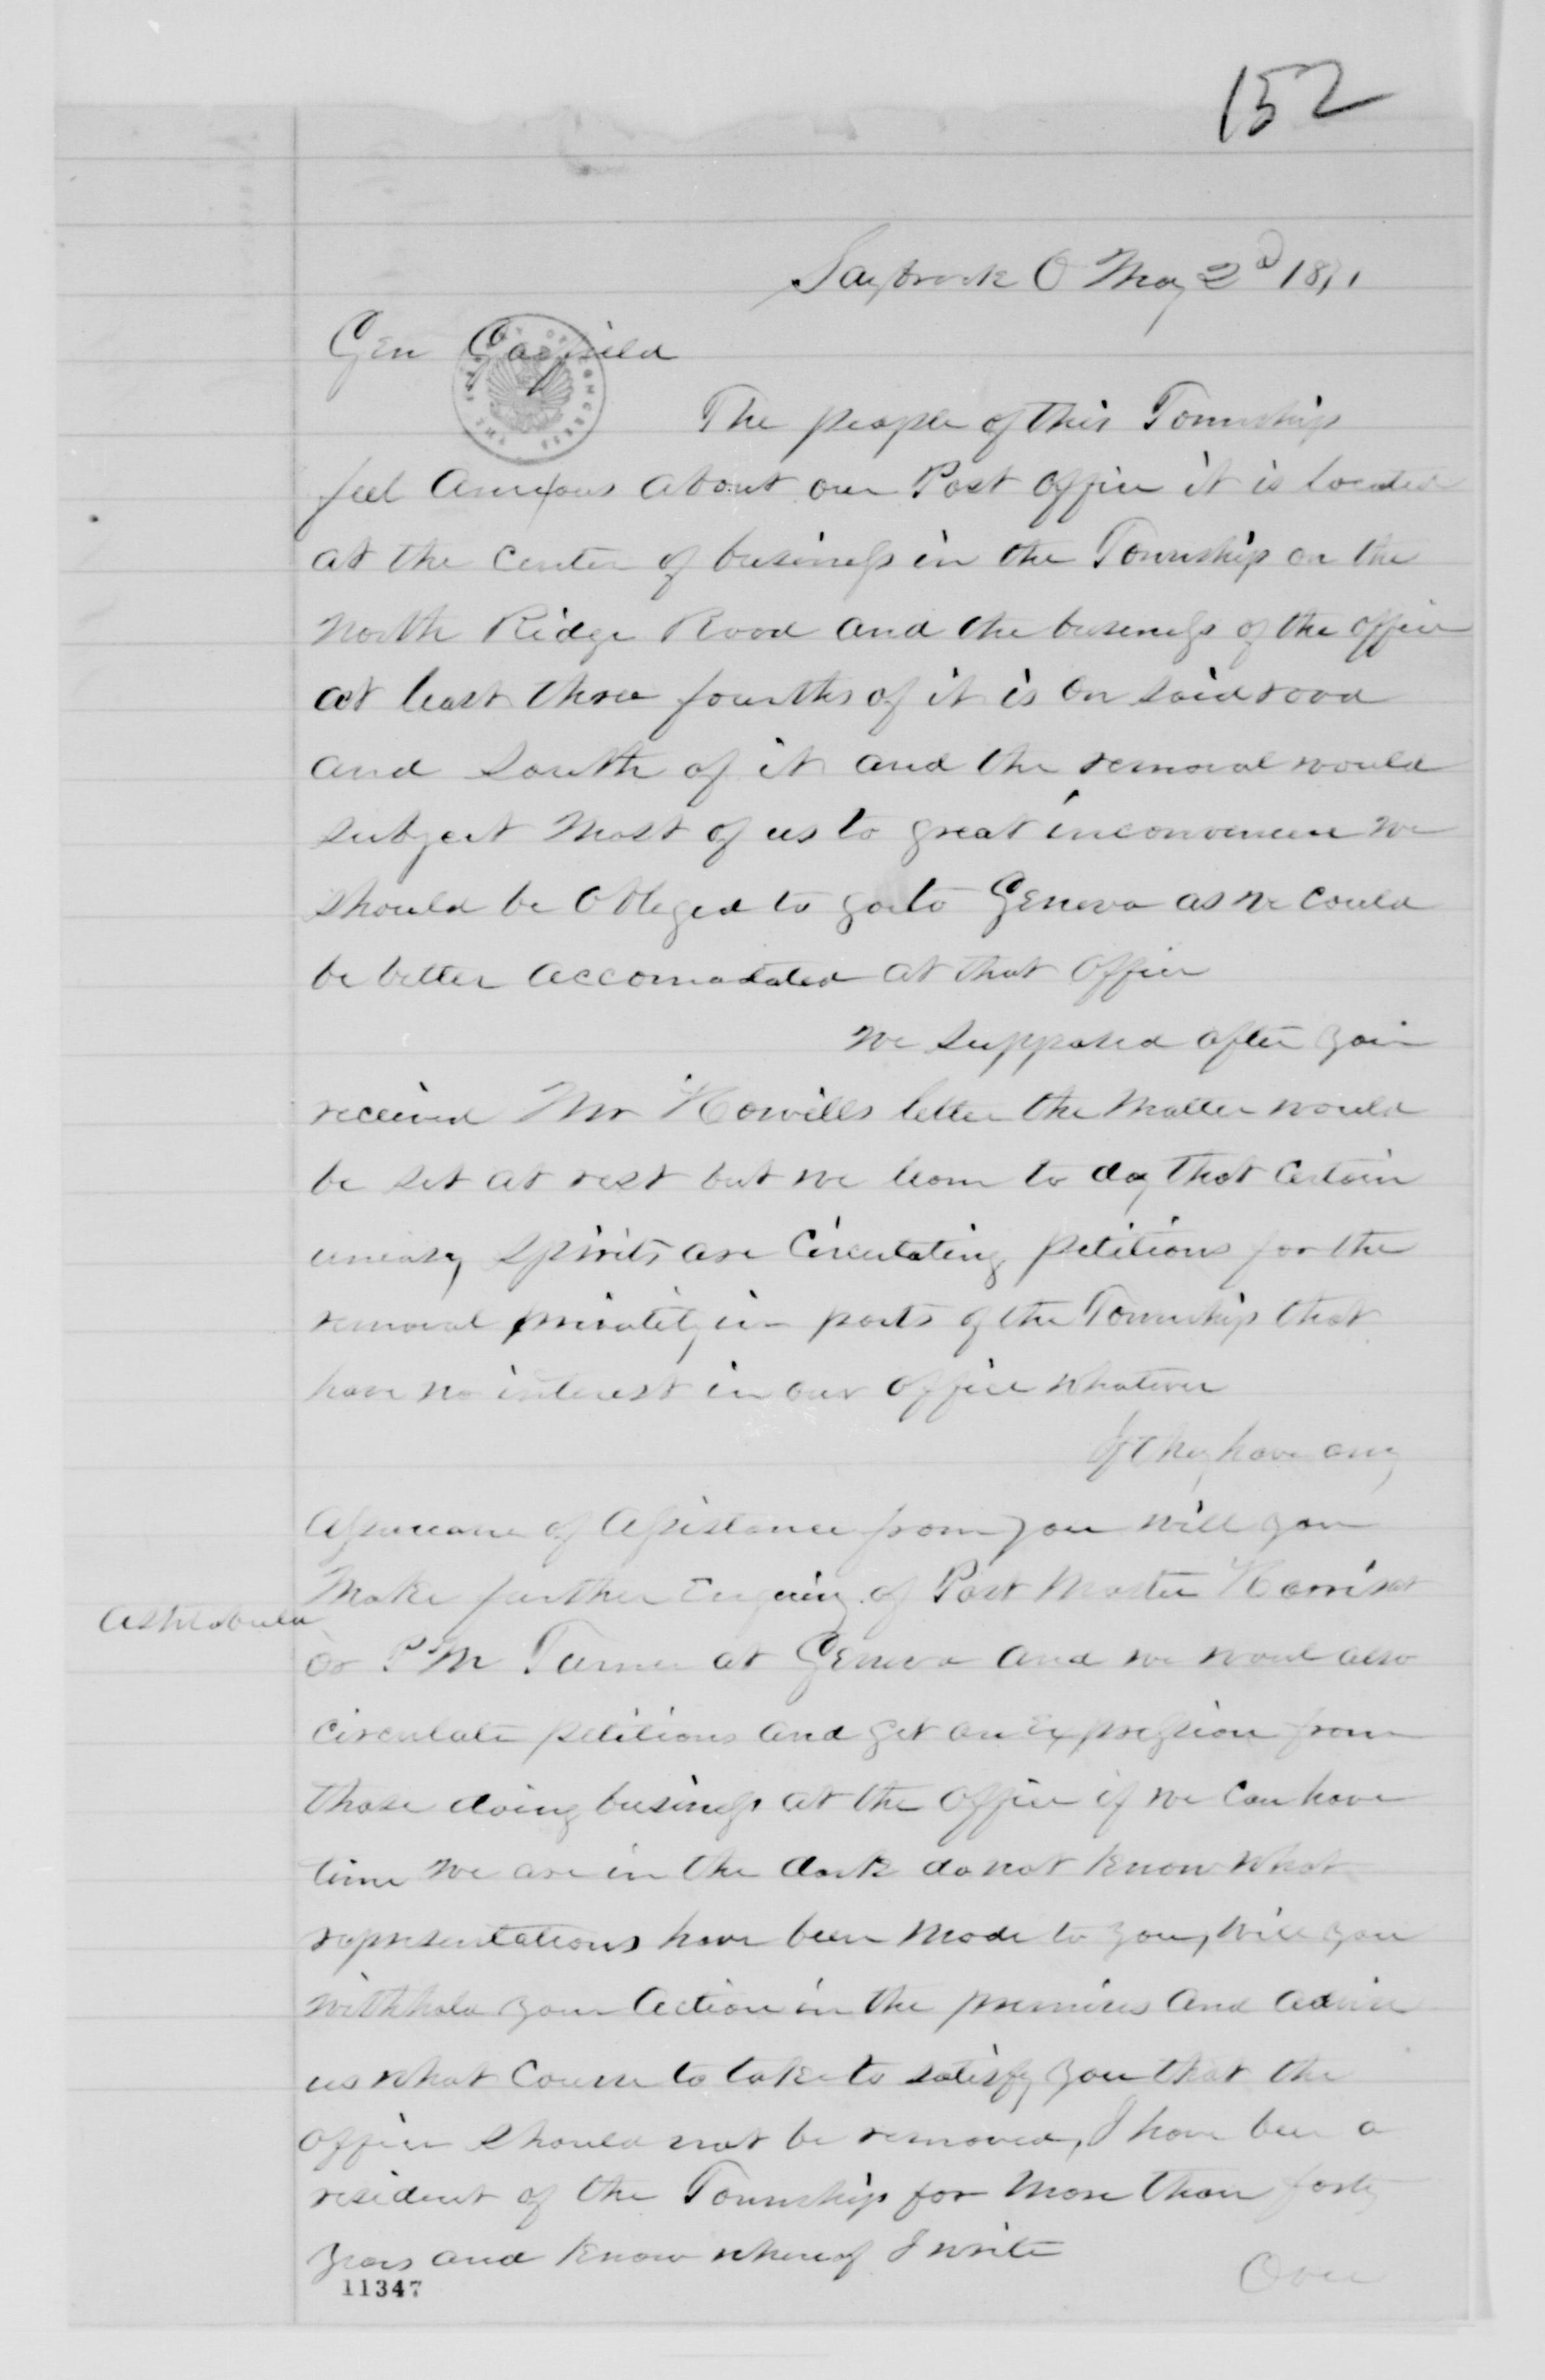 152
Saybrook O May 2d 1871
Gen Garfield
The people of this Township
feel anxious about our Post Office it is located
at the center of business in the Township on the
North Ridge Road and the business of the office
at least three fourths of it is on said road
and South of it and the removal would
subject most of us to great inconvenience we
should be obliged to go to Geneva as we could
be better accomodated at that office
We supposed after you
received Mr Howells letter the matter would
be set at rest but we learn to day that certain
uneasy spirits are circulating petitions for the
removal privately in parts of the Township that
have no interest in our office whatever
If they have any
assurance of assistance from you will you
make further enquiry of Post Master Harris at
Ashtabula
or P M Turner at Geneva and we would also
circulate petitions and get an expression from
those doing business at the office if we can have
time We are in the dark do not know what
representations have been made to you, Will you
withhold your action in the premises and advise
us what course to take to satisfy you that the
office should not be removed, I have been a
resident of the Township for more than forty
years and know whereof I write
Over
11347